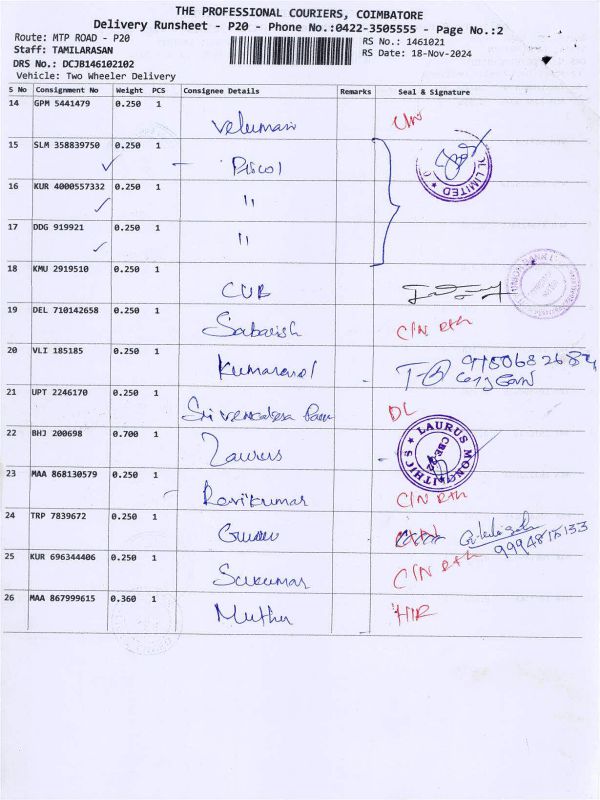 THE PROFESSIONAL COURIERS, COIMBATORE
Delivery Runsheet - P20 - Phone No.:0422-3505555 - Page No.:2
Route: MTP ROAD - P20 RS No.: 1461021
Staff: TAMILARASAN RS Date: 18-Nov-2024
DRS No.: DCJB146102102
Vehicle: Two Wheeler Delivery
S No Consignment No Weight PCS Consignee Details Remarks Seal & Signature
14 GPM 5441479 0.250 1
Velumani
15 SLM 358839750 0.250 1
Pricol
LIMITED
16 KUR 4000557332 0.250 1
"
17 DDG 919921 0.250 1
"
18 KMU 2919510 0.250 1
CUB
19 DEL 710142658 0.250 1
Sabarish C/N R+h
20 VLI 185185 0.250 1
Kumaravel
21 UPT 2246170 0.250 1
Sri Vengatesa DL
22 BHJ 200698 0.700 1
Laurus LAURUS
23 MAA 868130579 0.250 1
Ravikumar C/N R+h
24 TRP 7839672 0.250 1
9994815133
25 KUR 696344406 0.250 1
Sukumar C/N R+h
26 MAA 867999615 0.360 1
Muthu